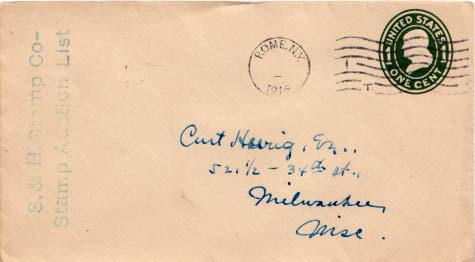 S. & H. Stamp Co-
Stamp Auction List
ROME, N.Y.
1916
UNITED STATES
ONE CENT
Curt Hovig, Esq.,
521½ - 34th St.,
Milwaukee,
Wisc.